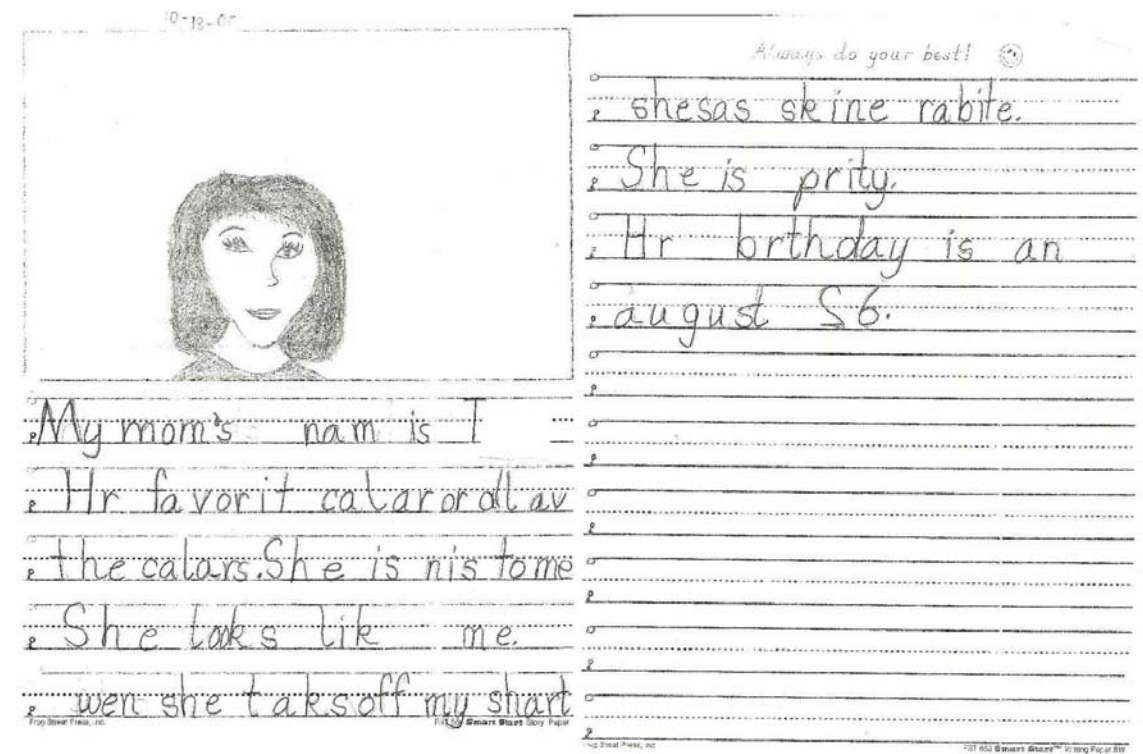 10-18-07
My mom's nam is T
Hr favorit calar or all av
the calars. She is nis to me
She looks lik me.
wen she taks off my shart
Frog Street Press, Inc. FST 651 Smart Start Story Paper
Always do your best!
shesas skine rabite.
She is prity.
Hr brthday is an
august S6.
Frog Street Press, Inc FST 653 Smart Start™ Writing Paper 8W